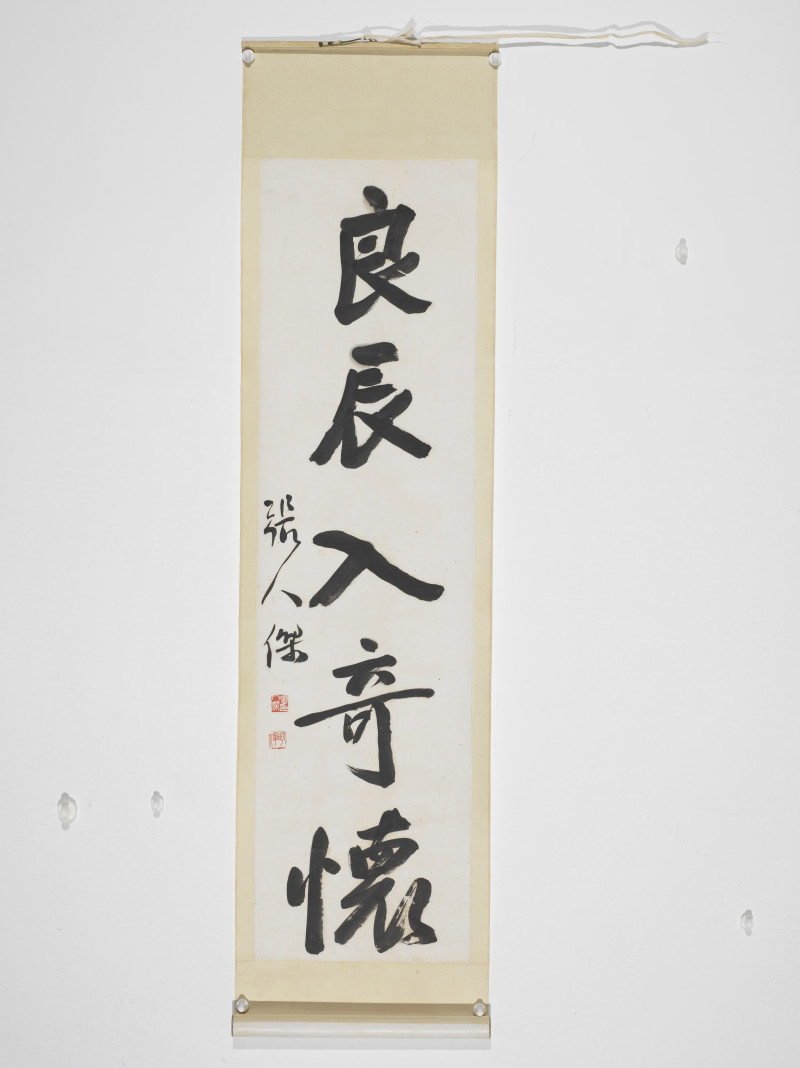 良辰入奇懷
張人傑